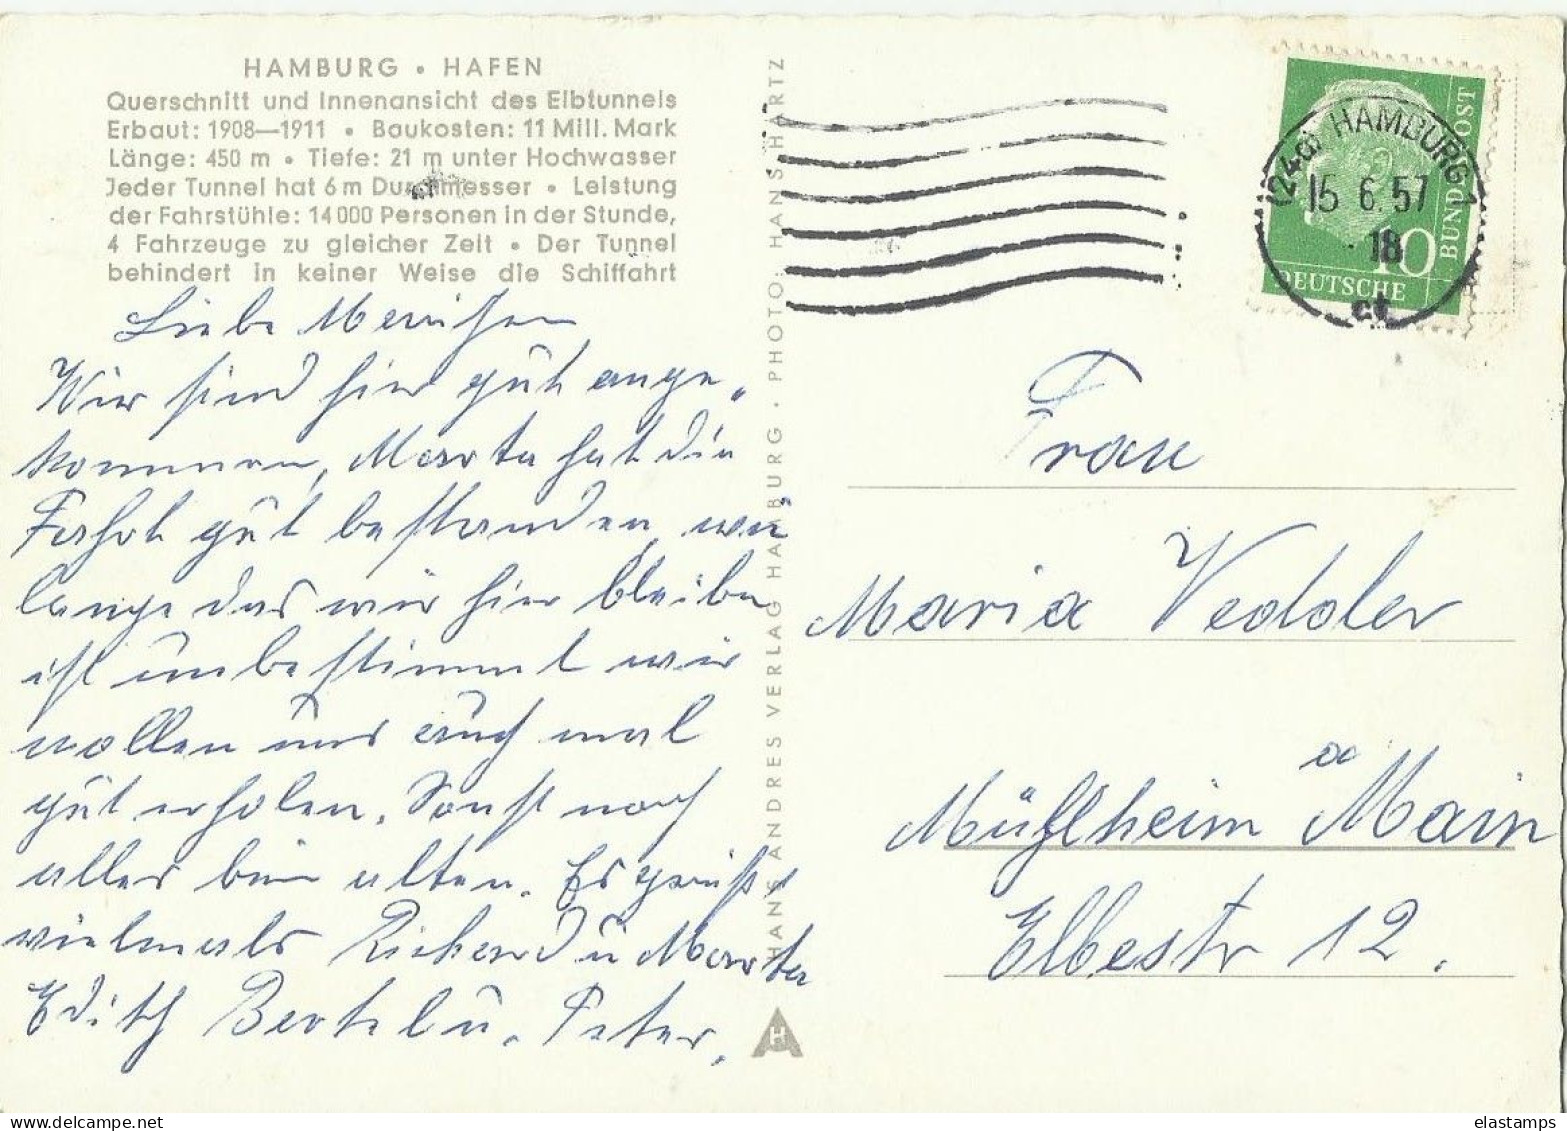 HAMBURG • HAFEN
Querschnitt und Innenansicht des Elbtunnels
Erbaut: 1908—1911 • Baukosten: 11 Mill. Mark
Länge: 450 m • Tiefe: 21 m unter Hochwasser
Jeder Tunnel hat 6 m Durchmesser • Leistung
der Fahrstühle: 14 000 Personen in der Stunde,
4 Fahrzeuge zu gleicher Zeit • Der Tunnel
behindert in keiner Weise die Schiffahrt
Liebe
Wir sind hier gut ange„
kommen, Marta hat die
Fahrt gut bestanden, wie
lange das wir hier bleiben
ist unbestimmt wir
wollen uns auch mal
gut erholen. Sonst noch
alles beim alten. Es grüßt
vielmals Richard u Marta
Edith Bertel u. Peter.
HANS ANDRES VERLAG HAMBURG • PHOTO: HANS HARTZ
H
(24a) HAMBURG 1
15.6.57
18
ct
10
DEUTSCHE
BUNDESPOST
Frau
Maria Vedder
Mühlheim a Main
Elbestr 12.
elastamps